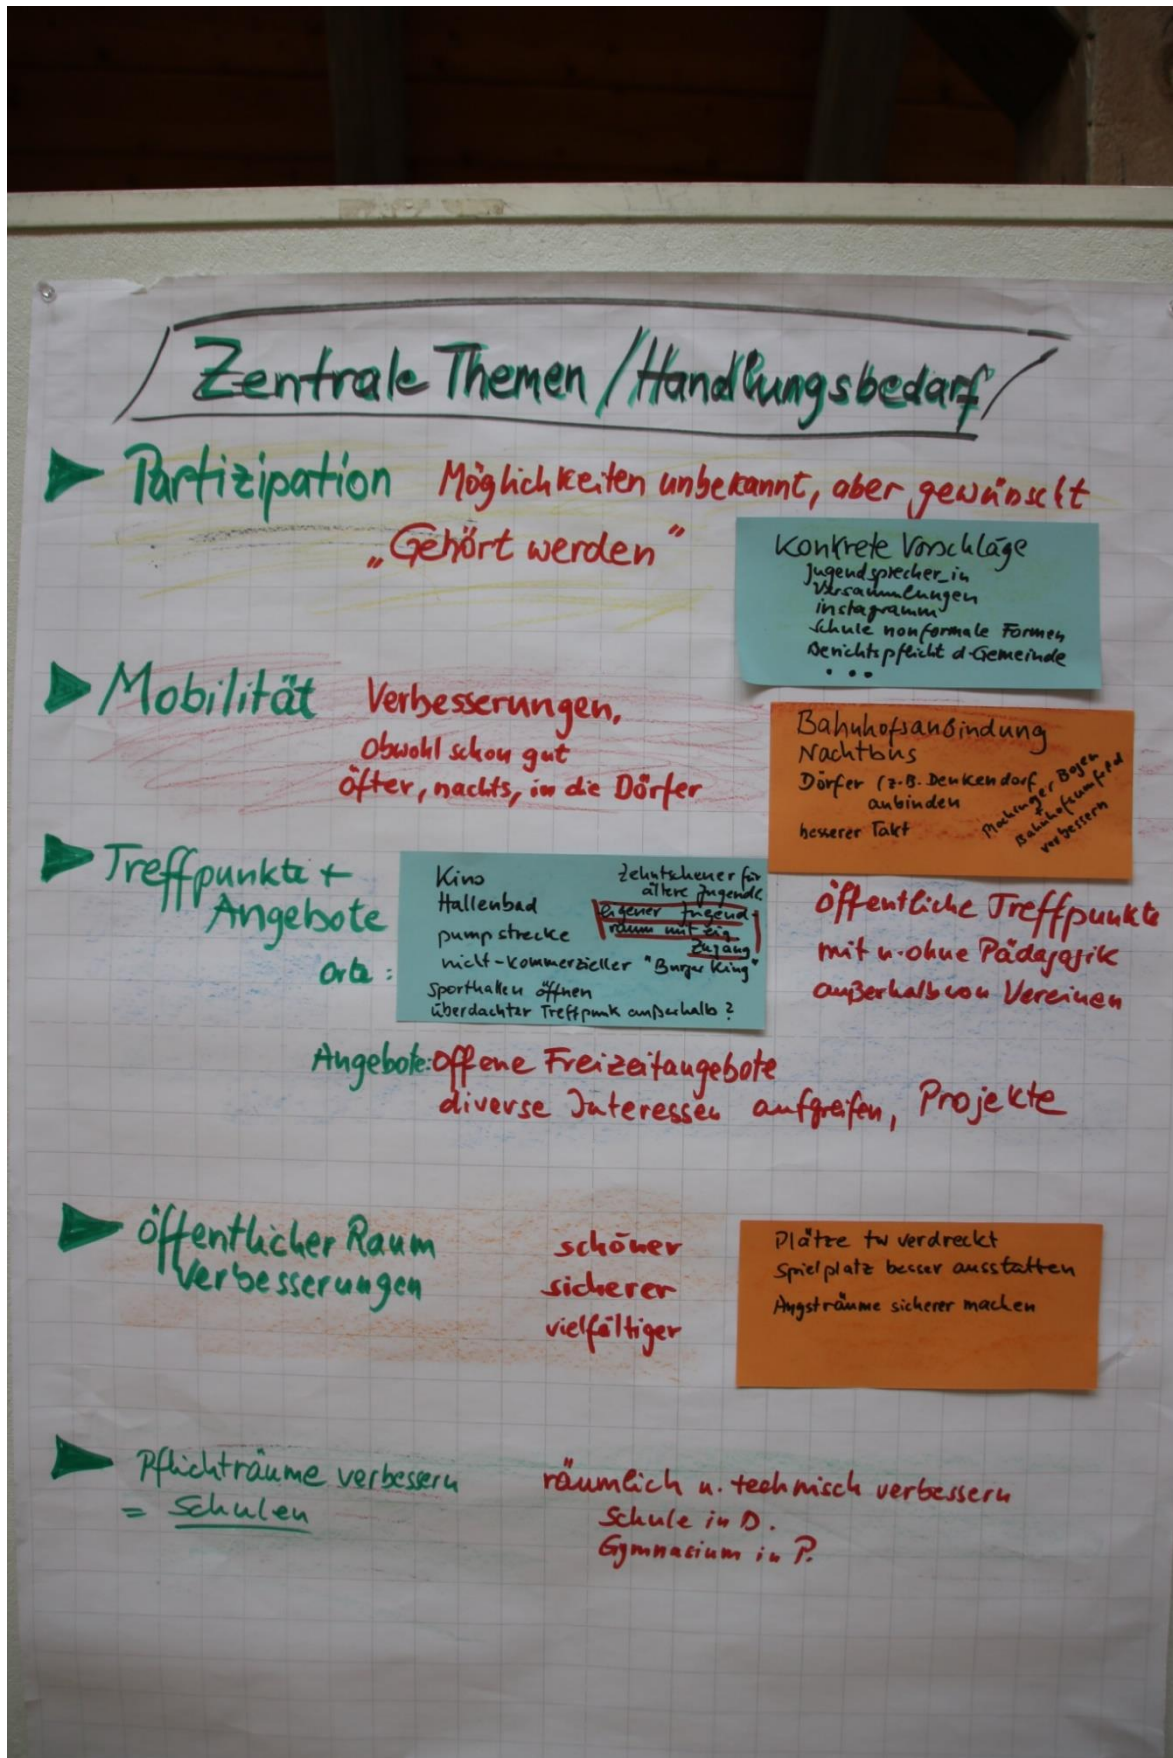 Zentrale Themen / Handlungsbedarf
Partizipation Möglichkeiten unbekannt, aber gewünscht
„Gehört werden"
Konkrete Vorschläge
Jugendsprecher_in
Versammlungen
instagramm
Schule nonformale Formen
Berichtspflicht d. Gemeinde
...
Mobilität Verbesserungen,
obwohl schon gut
öfter, nachts, in die Dörfer
Bahnhofsanbindung
Nachtbus
Dörfer (z.B. Denkendorf
anbinden
besserer Takt
Plochinger Bogen
+
Bahnhofsumfeld
verbessern
Treffpunkte +
Angebote
Orte :
Kino
Hallenbad
pumpstrecke
nicht-kommerzieller "Burger King"
Sporthallen öffnen
überdachter Treffpunk außerhalb ?
Zehntscheuer für
ältere Jugendl.
eigener Jugend-
raum mit eig
Zugang
öffentliche Treffpunkte
mit u. ohne Pädagogik
außerhalb von Vereinen
Angebote: Offene Freizeitangebote
diverse Interessen aufgreifen, Projekte
öffentlicher Raum
Verbesserungen
schöner
sicherer
vielfältiger
Plätze tw verdreckt
Spielplatz besser ausstatten
Angsträume sicherer machen
Pflichträume verbessern
= Schulen
räumlich u. technisch verbessern
Schule in D.
Gymnasium in P.